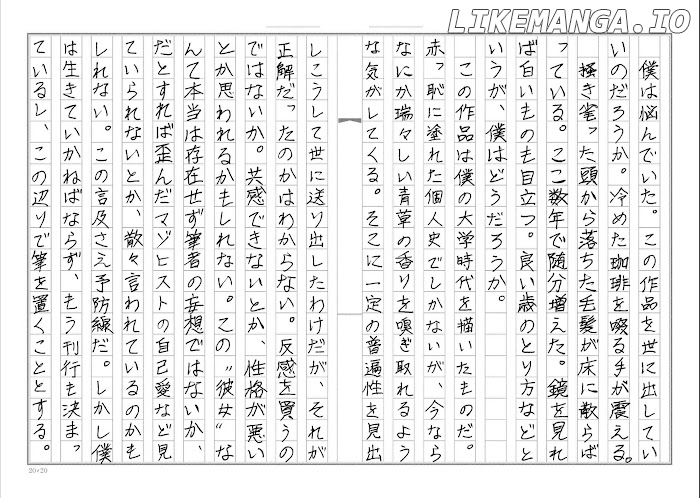 LIKEMANGA.IO
僕は悩んでいた。この作品を世に出してい
いのだろうか。冷めた珈琲を啜る手が震える。
掻き毟った頭から落ちた毛髪が床に散らば
っている。ここ数年で随分増えた。鏡を見れ
ば白いものも目立つ。良い歳のとり方などと
いうが、僕はどうだろうか。
この作品は僕の大学時代を描いたものだ。
赤っ恥に塗れた個人史でしかないが、今なら
なにか瑞々しい青草の香りを嗅ぎ取れるよう
な気がしてくる。そこに一定の普遍性を見出
しこうして世に送り出したわけだが、それが
正解だったのかはわからない。反感を買うの
ではないか。共感できないとか、性格が悪い
とか思われるかもしれない。この〝彼女〟な
んて本当は存在せず筆者の妄想ではないか、
だとすれば歪んだマゾヒストの自己愛など見
ていられないとか、散々言われているのかも
しれない。この言及さえ予防線だ。しかし僕
は生きていかねばならず、もう刊行も決まっ
ているし、この辺りで筆を置くこととする。
20×20